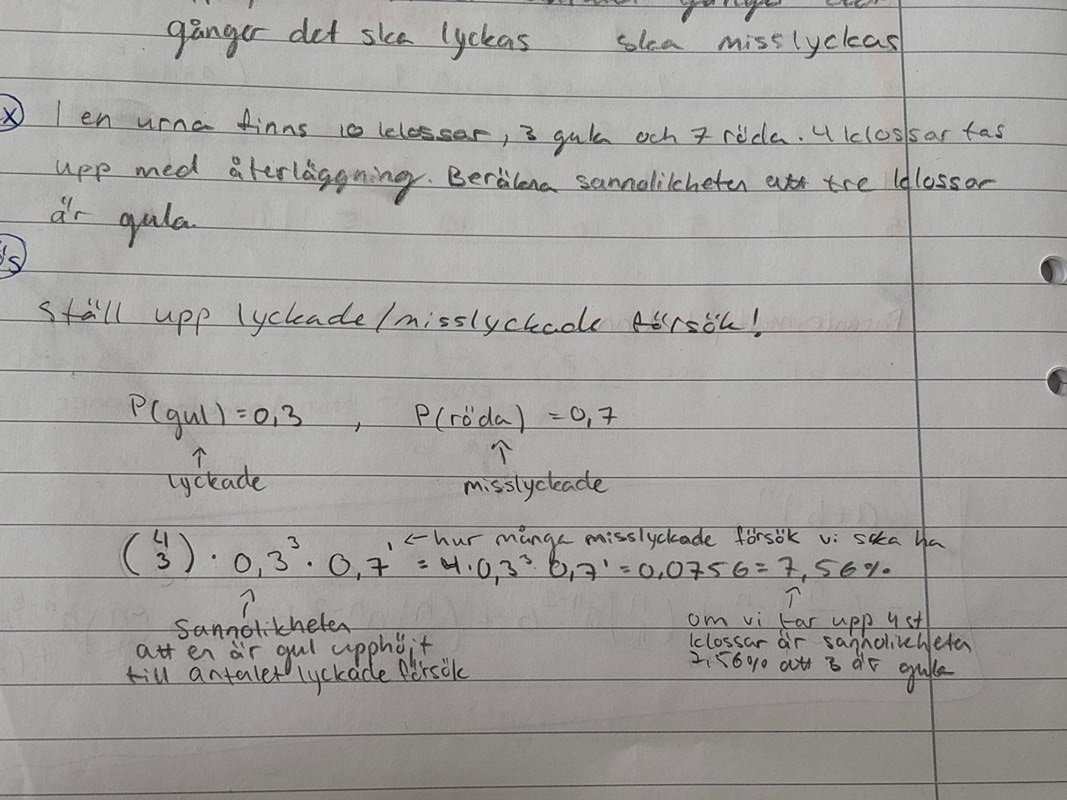 gånger det ska lyckas ska misslyckas
Ex I en urna finns 10 klossar, 3 gula och 7 röda. 4 klossar tas
upp med återläggning. Beräkna sannolikheten att tre klossar
är gula.
Ställ upp lyckade/misslyckade försök!
P(gul) = 0,3 , P(röda) = 0,7
↑ ↑
lyckade misslyckade
← hur många misslyckade försök vi ska ha
(4 3) · 0,3³ · 0,7¹ = 4·0,3³ 0,7¹ = 0,0756 = 7,56%
↑ ↑
Sannolikheten
att en är gul upphöjt
till antalet lyckade försök
om vi tar upp 4 st
klossar är sannolikheten
7,56% att 3 är gula